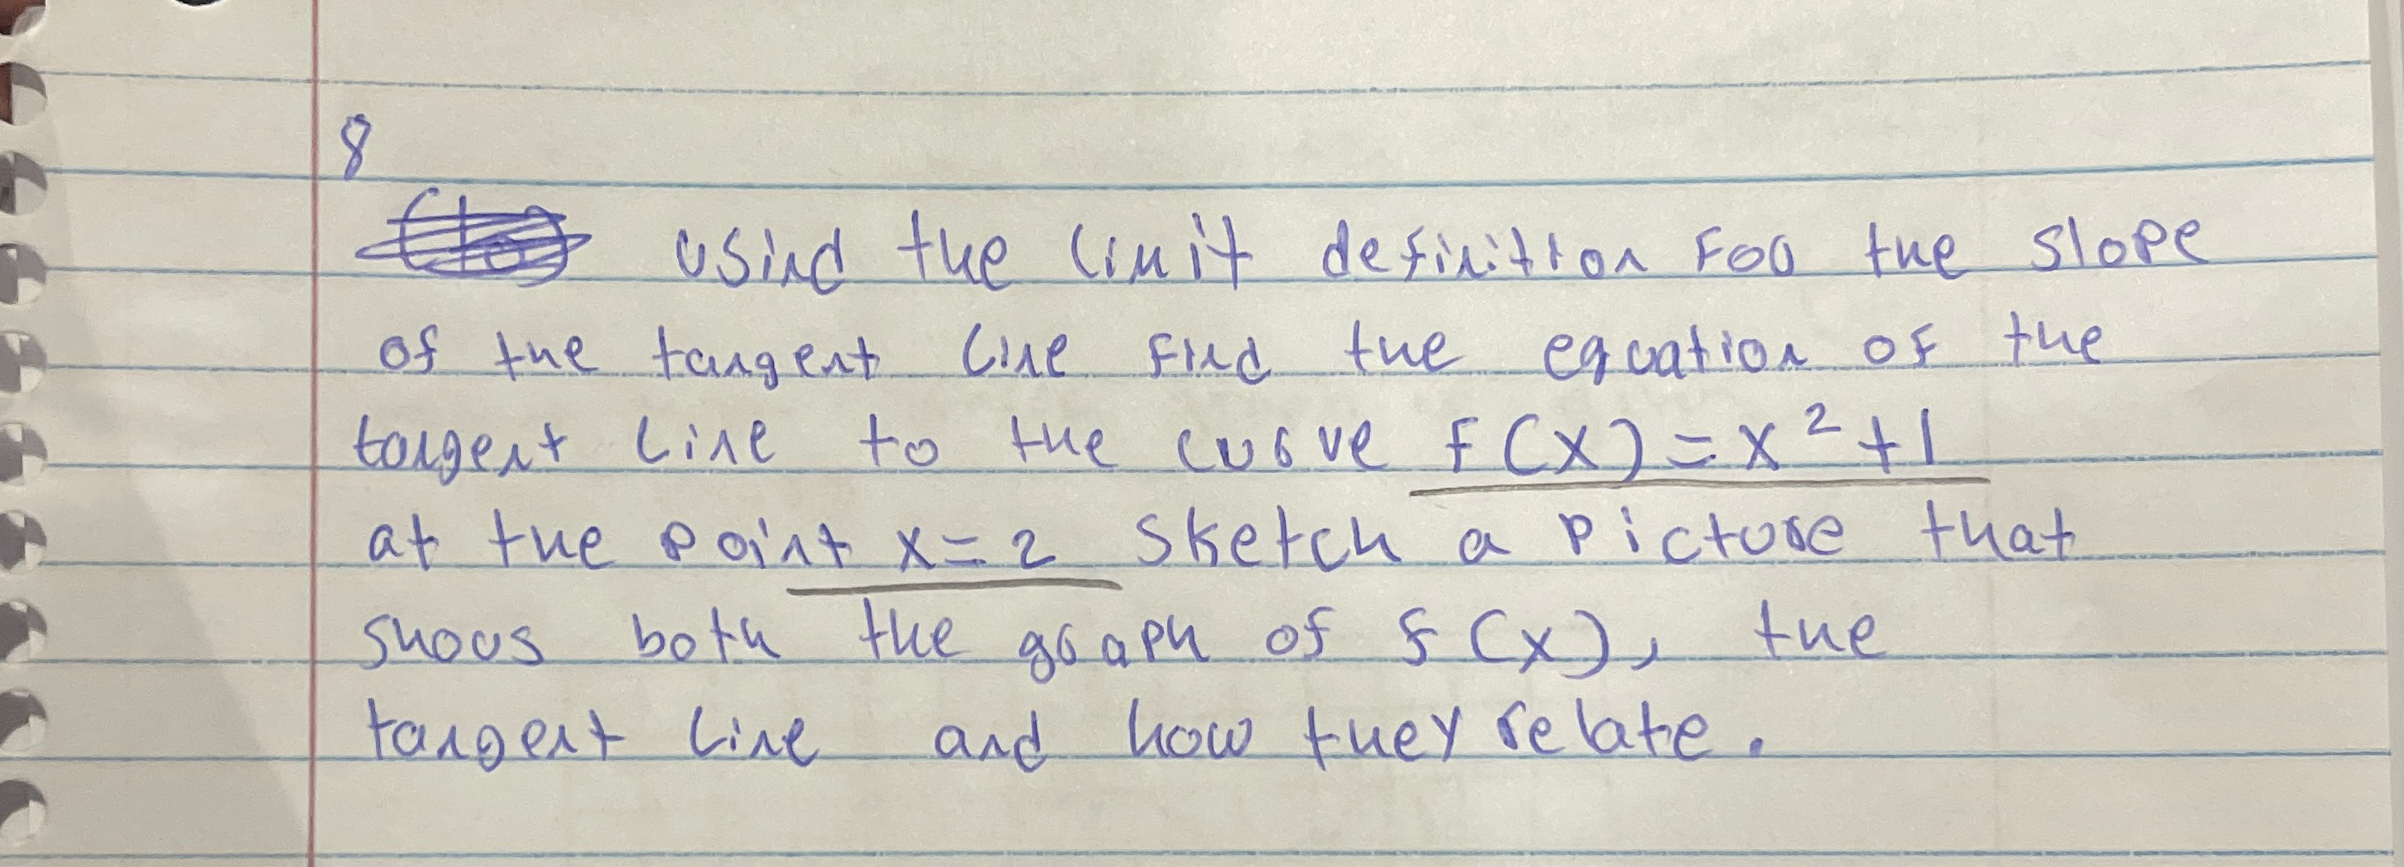 8
Using the limit definition For the slope
of the tangent line find the equation of the
tangent line to the curve f(x)=x²+1
at the point x=2 Sketch a picture that
shows both the graph of f(x), the
tangent line and how they relate.